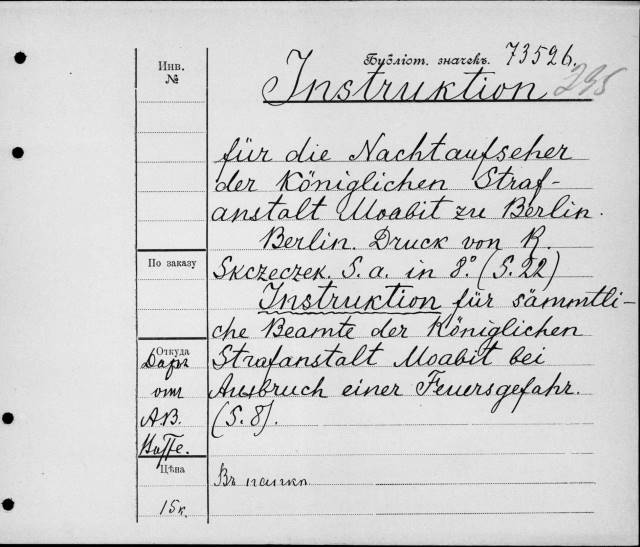 Библіот. значекъ. 73526.
Инв.
№
Instruktion
235
für die Nachtaufseher
der Königlichen Straf-
anstalt Moabit zu Berlin.
Berlin. Druck von R.
По заказу
Skczeczek. S. a. in 8.° (S. 22)
Instruktion für sämmtli-
che Beamte der Königlichen
Откуда
Даръ
Strafanstalt Moabit bei
отъ
Ausbruch einer Feuersgefahr.
А.В.
(S. 8).
Цѣна
Въ папкѣ
15 к.